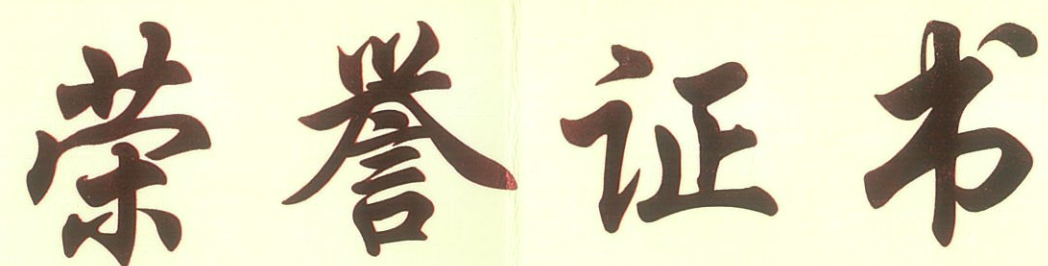 荣誉证书